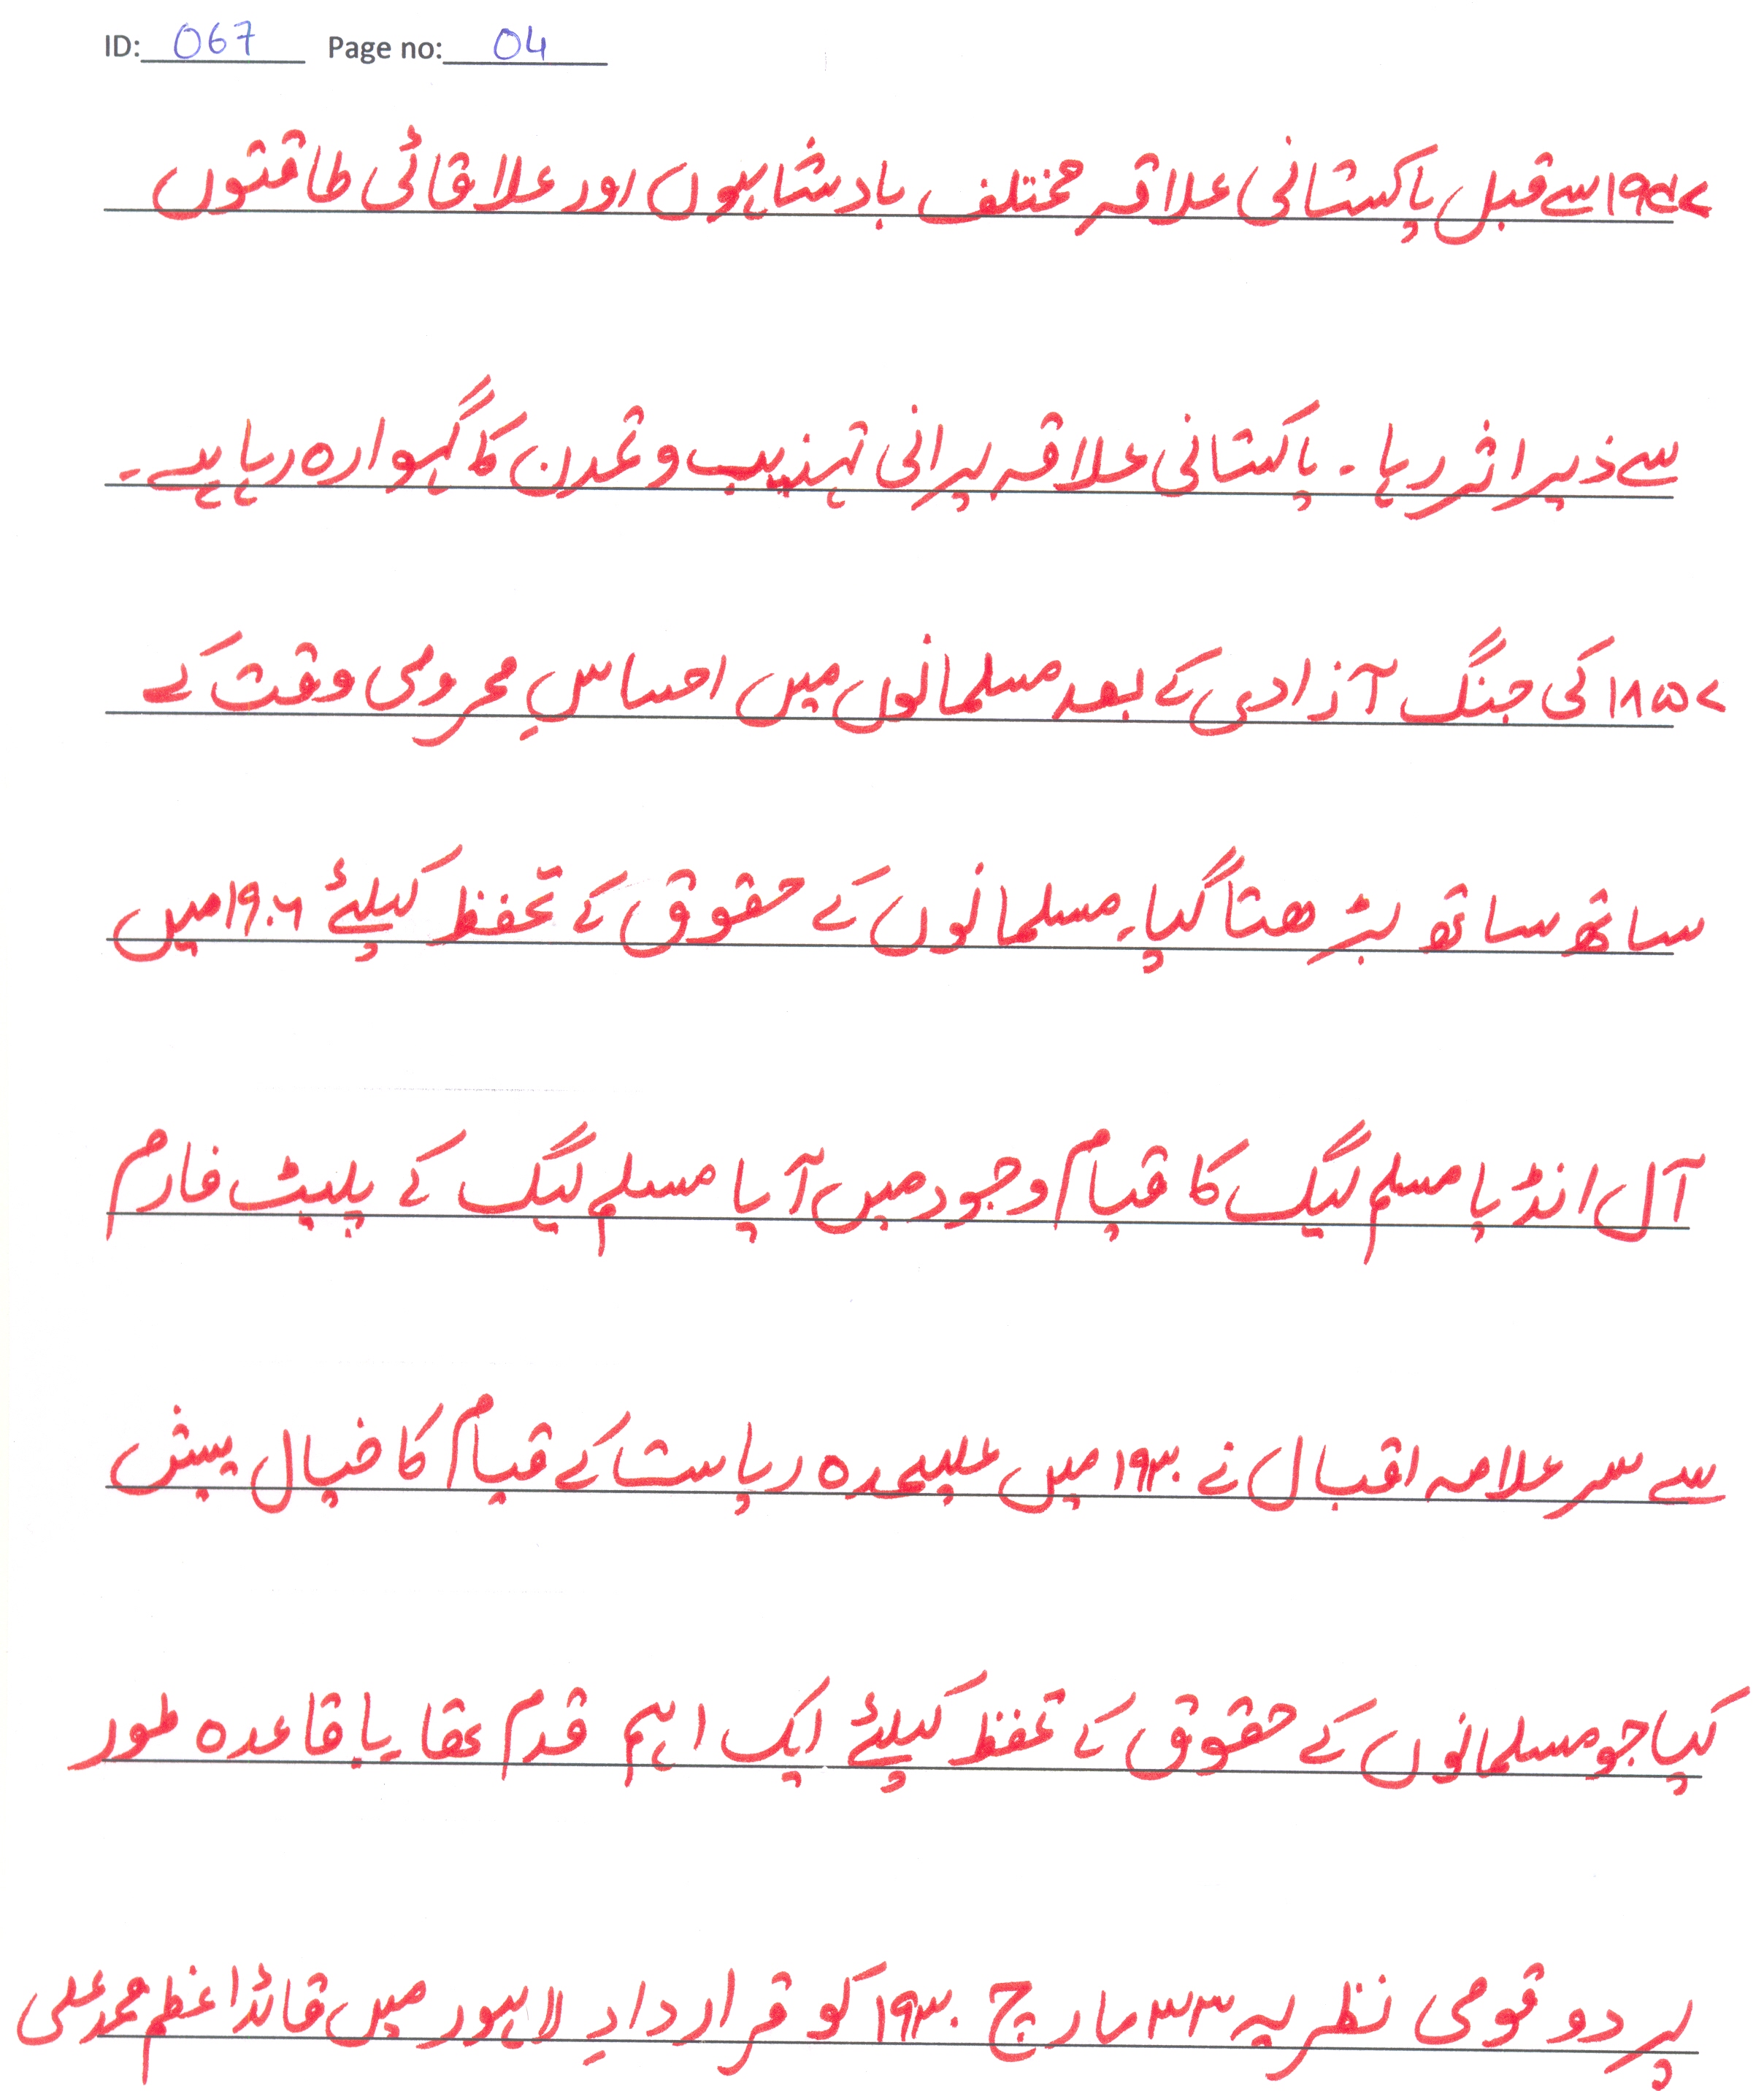 ID: 067 Page no: 04
۱۹۴۷ سے قبل پاکستانی علاقہ مختلف بادشاہوں اور علاقائی طاقتوں
سے ذیر اثر رہا۔ پاکستانی علاقہ پرانی تہذیب و تمدن کا گہوارہ رہا ہے۔
۱۸۵۷ کی جنگ آزادی کے بعد مسلمانوں میں احساسِ محرومی وقت کے
ساتھ ساتھ بڑھتا گیا۔ مسلمانوں کے حقوق کے تحفظ کیلئے ۱۹۰۶ میں
آل انڈیا مسلم لیگ کا قیام وجود میں آیا مسلم لیگ کے پلیٹ فارم
سے سر علامہ اقبال نے ۱۹۳۰ میں علیحدہ ریاست کے قیام کا خیال پیش
کیا جو مسلمانوں کے حقوق کے تحفظ کیلئے ایک اہم قدم تھا۔ باقاعدہ طور
پر دو قومی نظریہ ۲۳ مارچ ۱۹۳۰ کو قراردادِ لاہور میں قائداعظم محمد علی